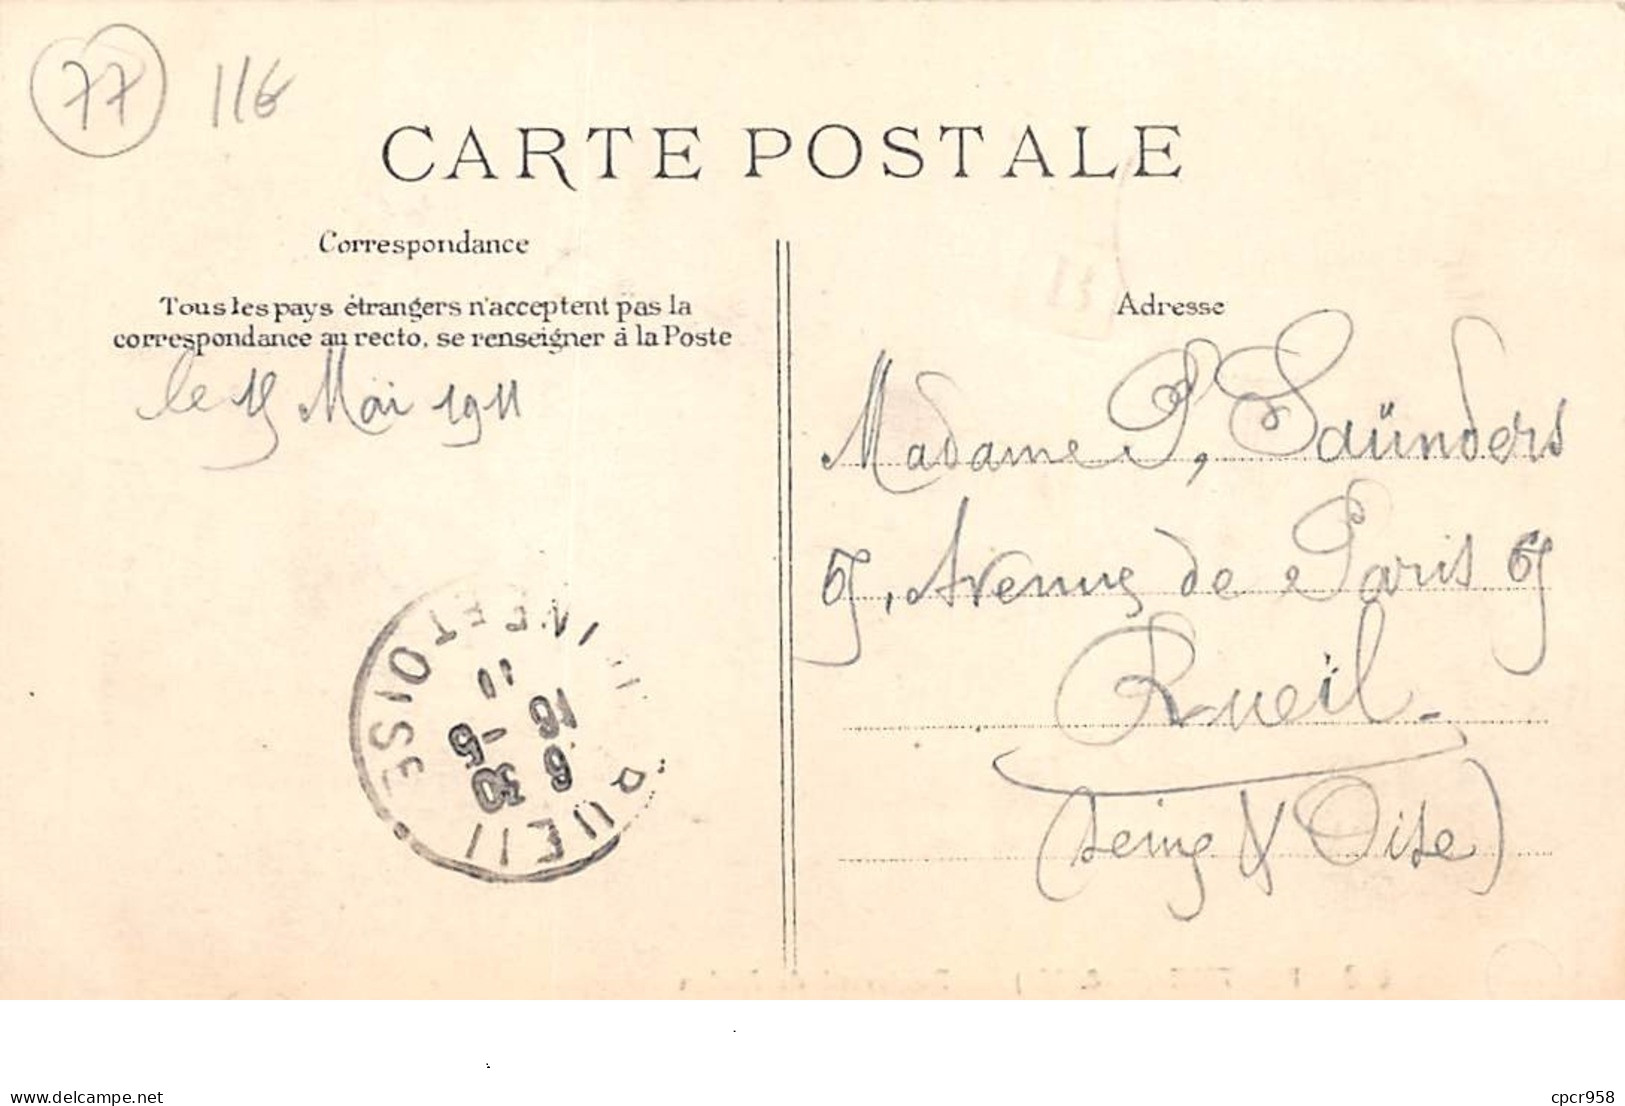 77 11€
CARTE POSTALE
Correspondance
Tous les pays étrangers n'acceptent pas la
correspondance au recto, se renseigner à la Poste
le 15 Mai 1911
Adresse
Madame P, Saünders
65, Avenue de Paris 65
Rueil -
(Seine & Oise)
RUEIL
SEINE ET OISE
6 30
16 - 5
11
www.delcampe.net
cpcr958